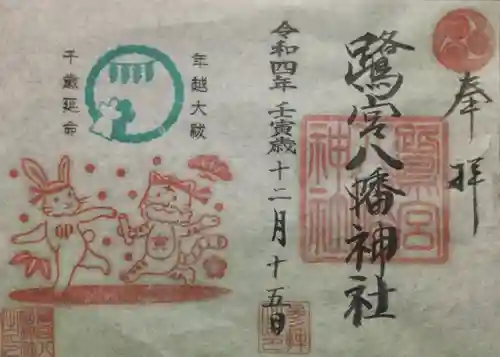 奉拝
鷺宮八幡神社
令和四年 壬寅歳 十二月十五日
年越大祓
千歳延命
卯